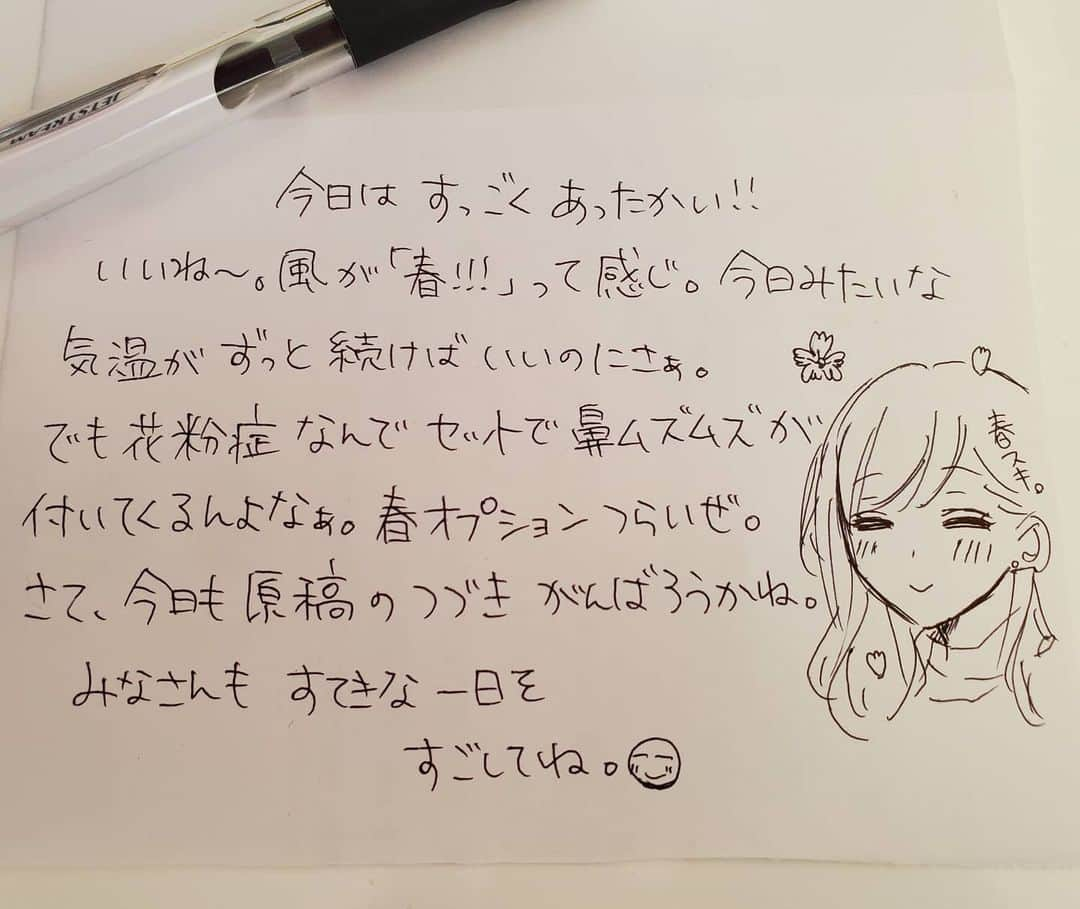 JETSTREAM
今日は すっごく あったかい!!
いいね〜。風が「春!!!」って感じ。今日みたいな
気温が ずっと 続けば いいのにさぁ。
でも 花粉症 なんで セットで 鼻ムズムズが
付いてくるんよなぁ。春オプション つらいぜ。
さて、今日も 原稿の つづき がんばろうかね。
みなさんも すてきな 一日を
すごしてね。
春スキ。